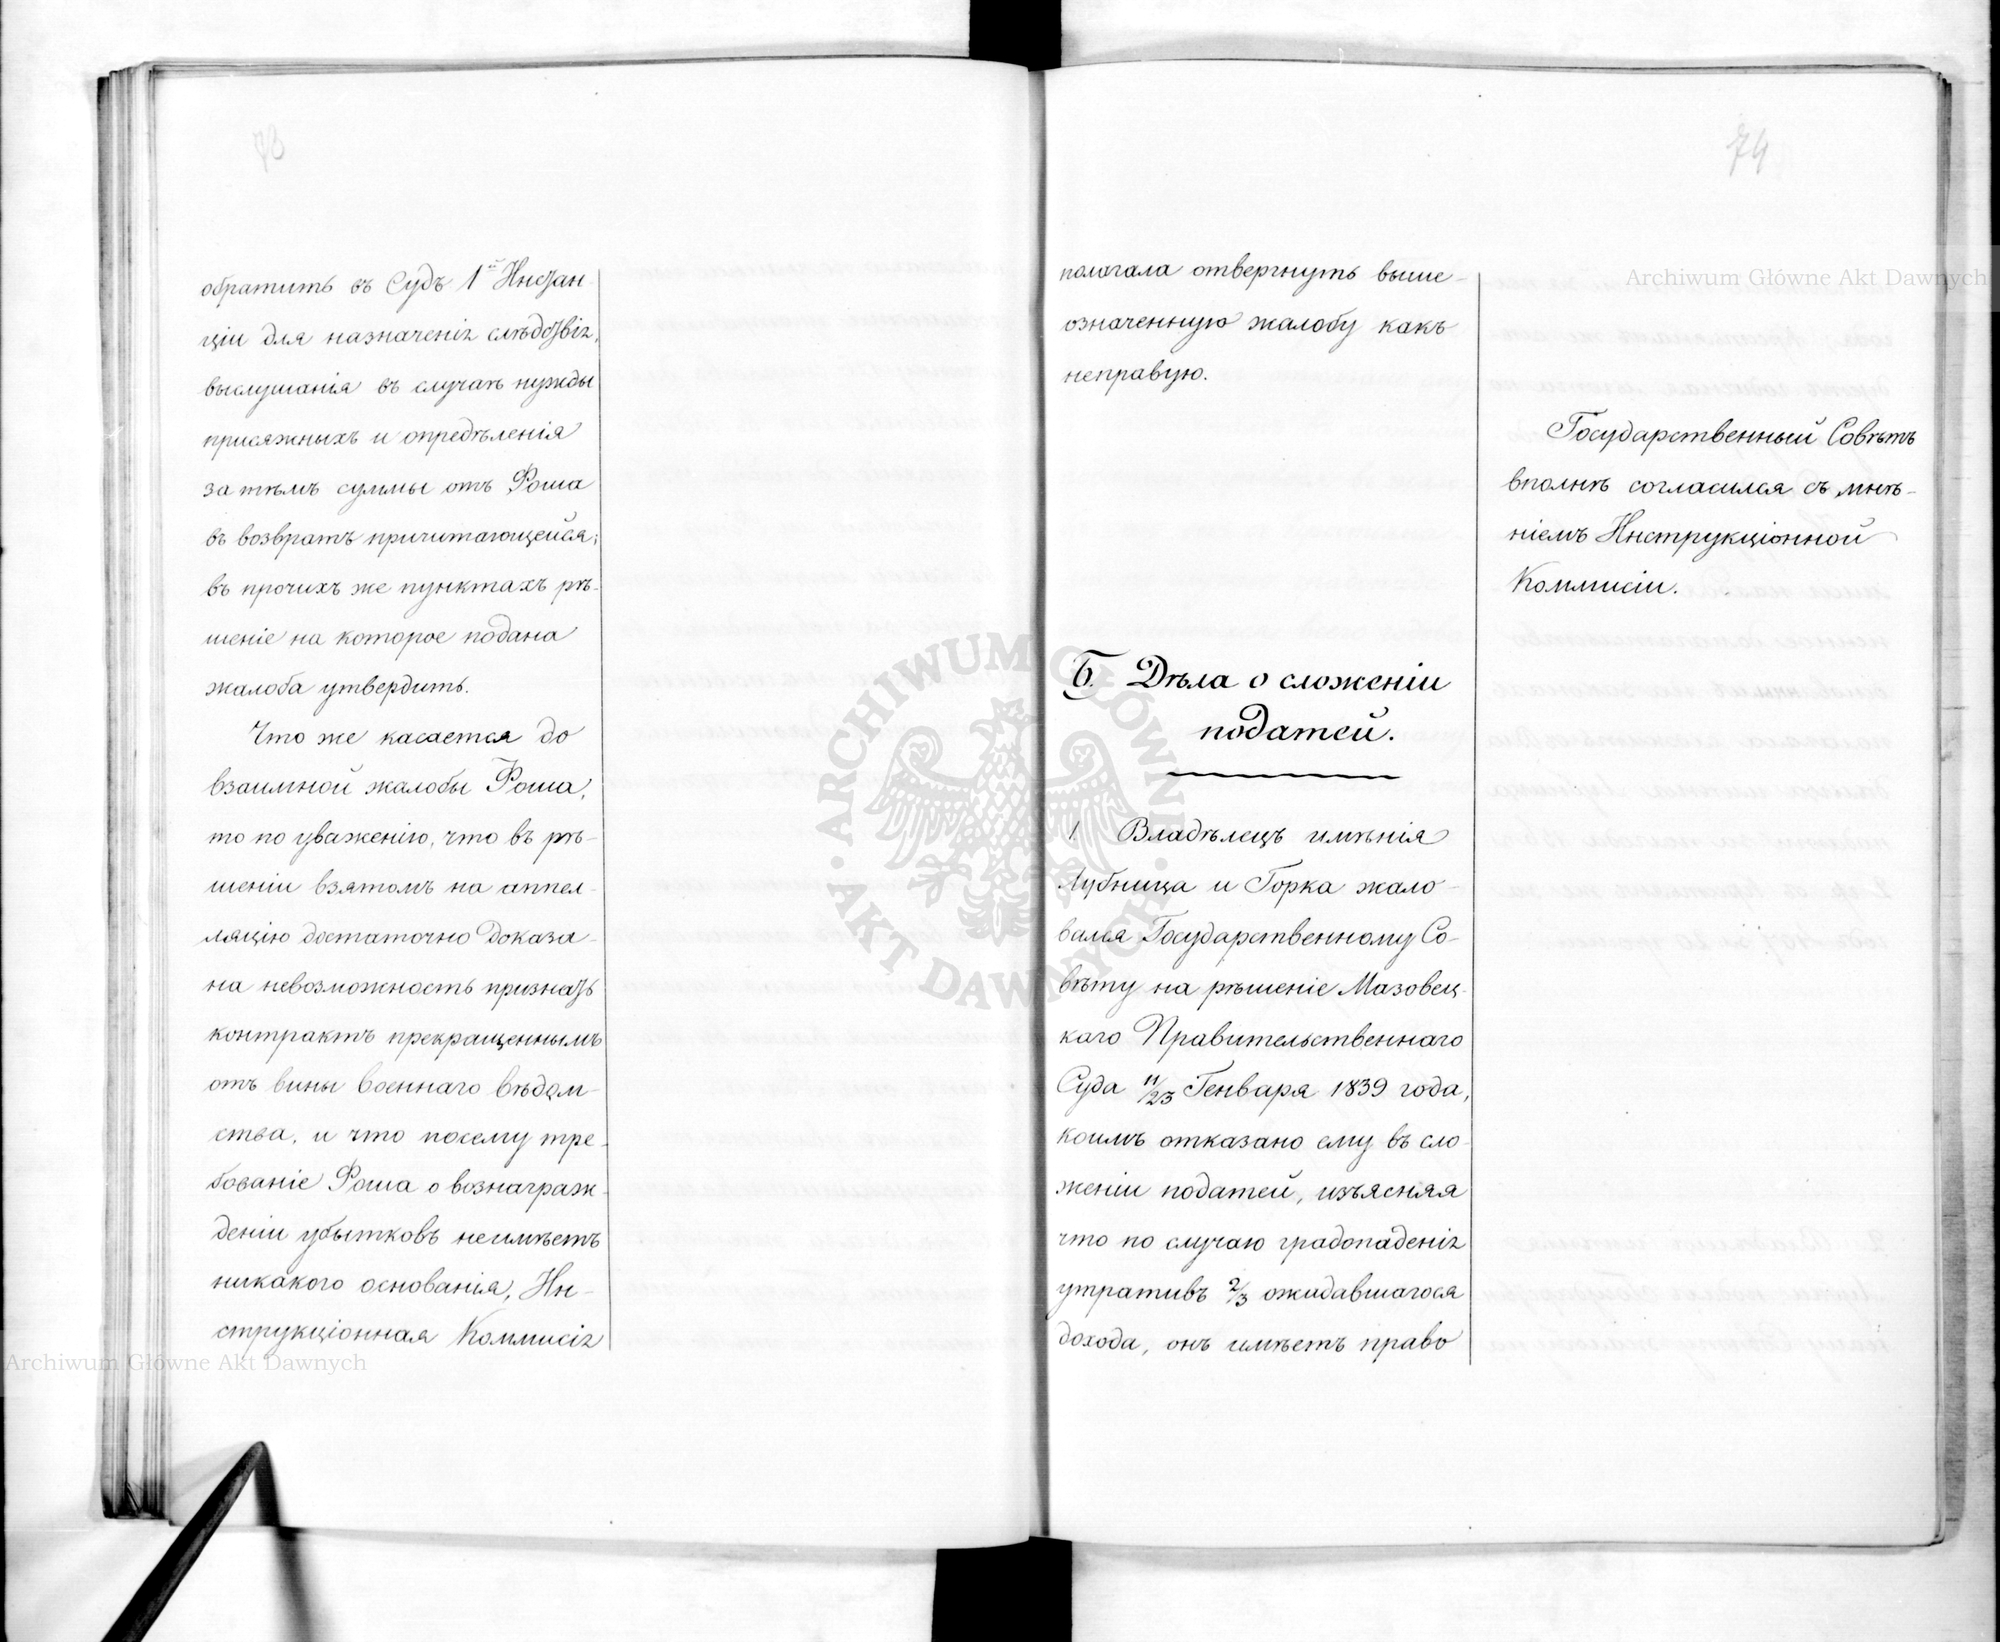 73
обратить въ Судъ 1й Инстан-
ціи для назначенія слѣдствія,
выслушанія въ случаѣ нужды
присяжныхъ и опредѣленія
за тѣмъ суммы отъ Роша
въ возвратъ причитающейся;
въ прочихъ же пунктахъ рѣ-
шеніе на которое подана
жалоба утвердить.
Что же касается до
взаимной жалобы Роша,
то по уваженію, что въ рѣ-
шеніи взятомъ на аппел-
ляцію достаточно доказа-
на невозможность признать
контрактъ прекращеннымъ
отъ вины военнаго вѣдом-
ства, и что посему тре-
бованіе Роша о вознаграж-
деніи убытковъ неимѣетъ
никакого основанія, Ин-
струкціонная Коммисія
74
полагала отвергнуть выше-
означенную жалобу какъ
неправую.
Государственный Совѣтъ
вполнѣ согласился съ мнѣ-
ніемъ Инструкціонной
Коммисіи.
Б. Дѣла о сложеніи
податей.
1. Владѣлецъ имѣнія
Лубница и Горка жало-
вался Государственному Со-
вѣту на рѣшеніе Мазовец-
каго Правительственнаго
Суда 11/23 Генваря 1839 года,
коимъ отказано ему въ сло-
женіи податей, изъясняя
что по случаю градопаденія
утративъ 2/3 ожидавшагося
дохода, онъ имѣетъ право
Archiwum Główne Akt Dawnych
Archiwum Główne Akt Dawnych
ARCHIWUM GŁÓWNE · AKT DAWNYCH ·